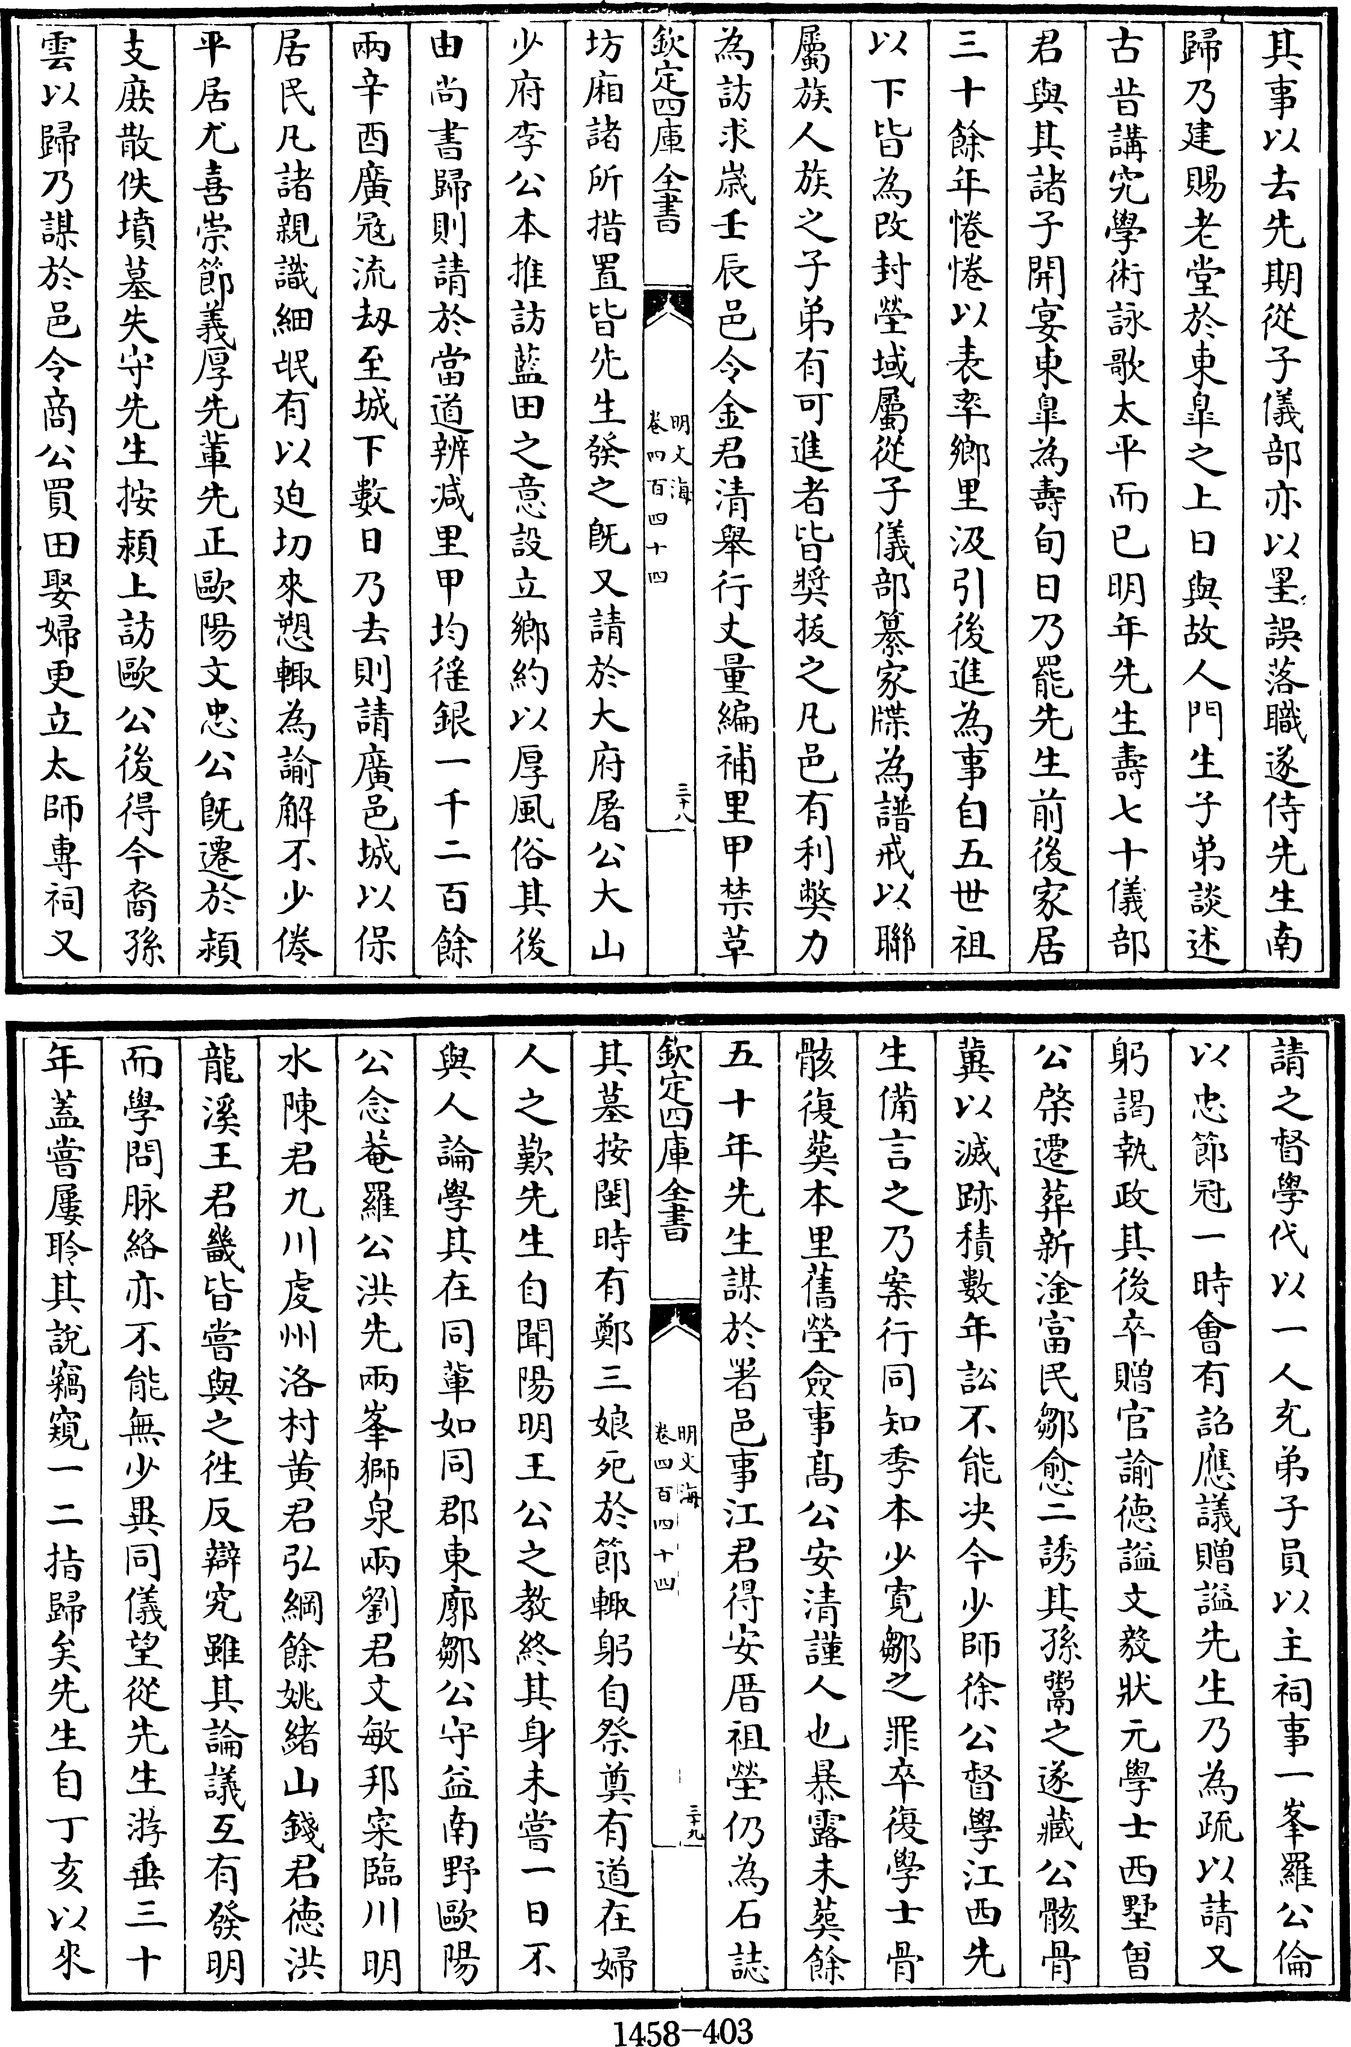 其事以去先期從子儀部亦以罣誤落職遂侍先生南
歸乃建賜老堂於東臯之上日與故人門生子弟談述
古昔講究學術詠歌太平而已明年先生壽七十儀部
君與其諸子開宴東臯為壽旬日乃罷先生前後家居
三十餘年惓惓以表率鄉里汲引後進為事自五世祖
以下皆為改封塋域屬從子儀部纂家牒為譜戒以聯
屬族人族之子弟有可進者皆奬拔之凡邑有利獘力
為訪求嵗壬辰邑令金君清舉行丈量編補里甲禁草
欽定四庫全書
明文海
卷四百四十四
三十八
坊廂諸所措置皆先生發之既又請於大府屠公大山
少府李公本推訪藍田之意設立鄉約以厚風俗其後
由尚書歸則請於當道辨减里甲均徭銀一千二百餘
兩辛酉廣冦流刼至城下數日乃去則請廣邑城以保
居民凡諸親識細氓有以迫切來愬輙為諭解不少倦
平居尤喜崇節義厚先軰先正歐陽文忠公既遷於潁
支庶散佚墳墓失守先生按潁上訪歐公後得今裔孫
雲以歸乃謀於邑令商公買田娶婦更立太師專祠又
請之督學代以一人充弟子員以主祠事一峯羅公倫
以忠節冠一時會有詔應議贈謚先生乃為疏以請又
躬謁執政其後卒贈官諭德謚文毅狀元學士西墅曾
公棨遷葬新淦富民鄒愈二誘其孫鬻之遂藏公骸骨
糞以滅跡積數年訟不能决今少師徐公督學江西先
生備言之乃案行同知季本少寛鄒之罪卒復學士骨
骸復葬本里舊塋僉事髙公安清謹人也暴露未葬餘
五十年先生謀於署邑事江君得安厝祖塋仍為石誌
欽定四庫全書
明文海
卷四百四十四
三十九
其墓按閩時有鄭三娘死於節輙躬自祭奠有道在婦
人之歎先生自聞陽明王公之教終其身未嘗一日不
與人論學其在同軰如同郡東廓鄒公守益南野歐陽
公念菴羅公洪先兩峯獅泉兩劉君文敏邦寀臨川明
水陳君九川䖍州洛村黄君弘綱餘姚緒山錢君徳洪
龍溪王君畿皆嘗與之徃反辯究雖其論議互有發明
而學問脉絡亦不能無少異同儀望從先生游垂三十
年葢嘗屢聆其說竊窺一二指歸矣先生自丁亥以來
1458-403